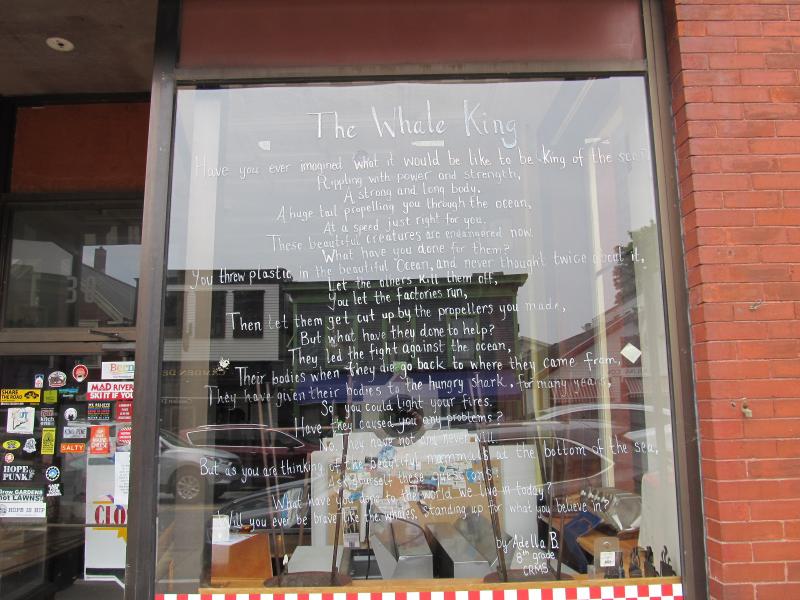 The Whale King
Have you ever imagined what it would be like to be King of the sea?
Rippling with power and strength,
A strong and long body.
A huge tail propelling you through the ocean,
At a speed just right for you.
These beautiful creatures are endangered now.
What have you done for them?
You threw plastic, in the beautiful Ocean, and never thought twice about it,
Let the others kill them off,
You let the factories run,
Then let them get cut up by the propellers you made,
But what have they done to help?
They led the fight against the ocean,
Their bodies when they die go back to where they came from,
They have given their bodies to the hungry shark, for many years,
So you could light your fires.
Have they caused you any problems?
No, they have not and never will
But as you are thinking of the beautiful mammals at the bottom of the sea,
Ask yourself these
What have you done to the world we live in today?
Will you ever be brave like the whales, standing up for what you believe in?
by Adella B.
8th grade
CRMS
38
Bern
SHARE THE ROAD
MAD RIVER
SKI IT IF YOU
SALTY
HOPE PUNK
Grow GARDENS
not LAWNS!
HOPE IS HIP
CLO